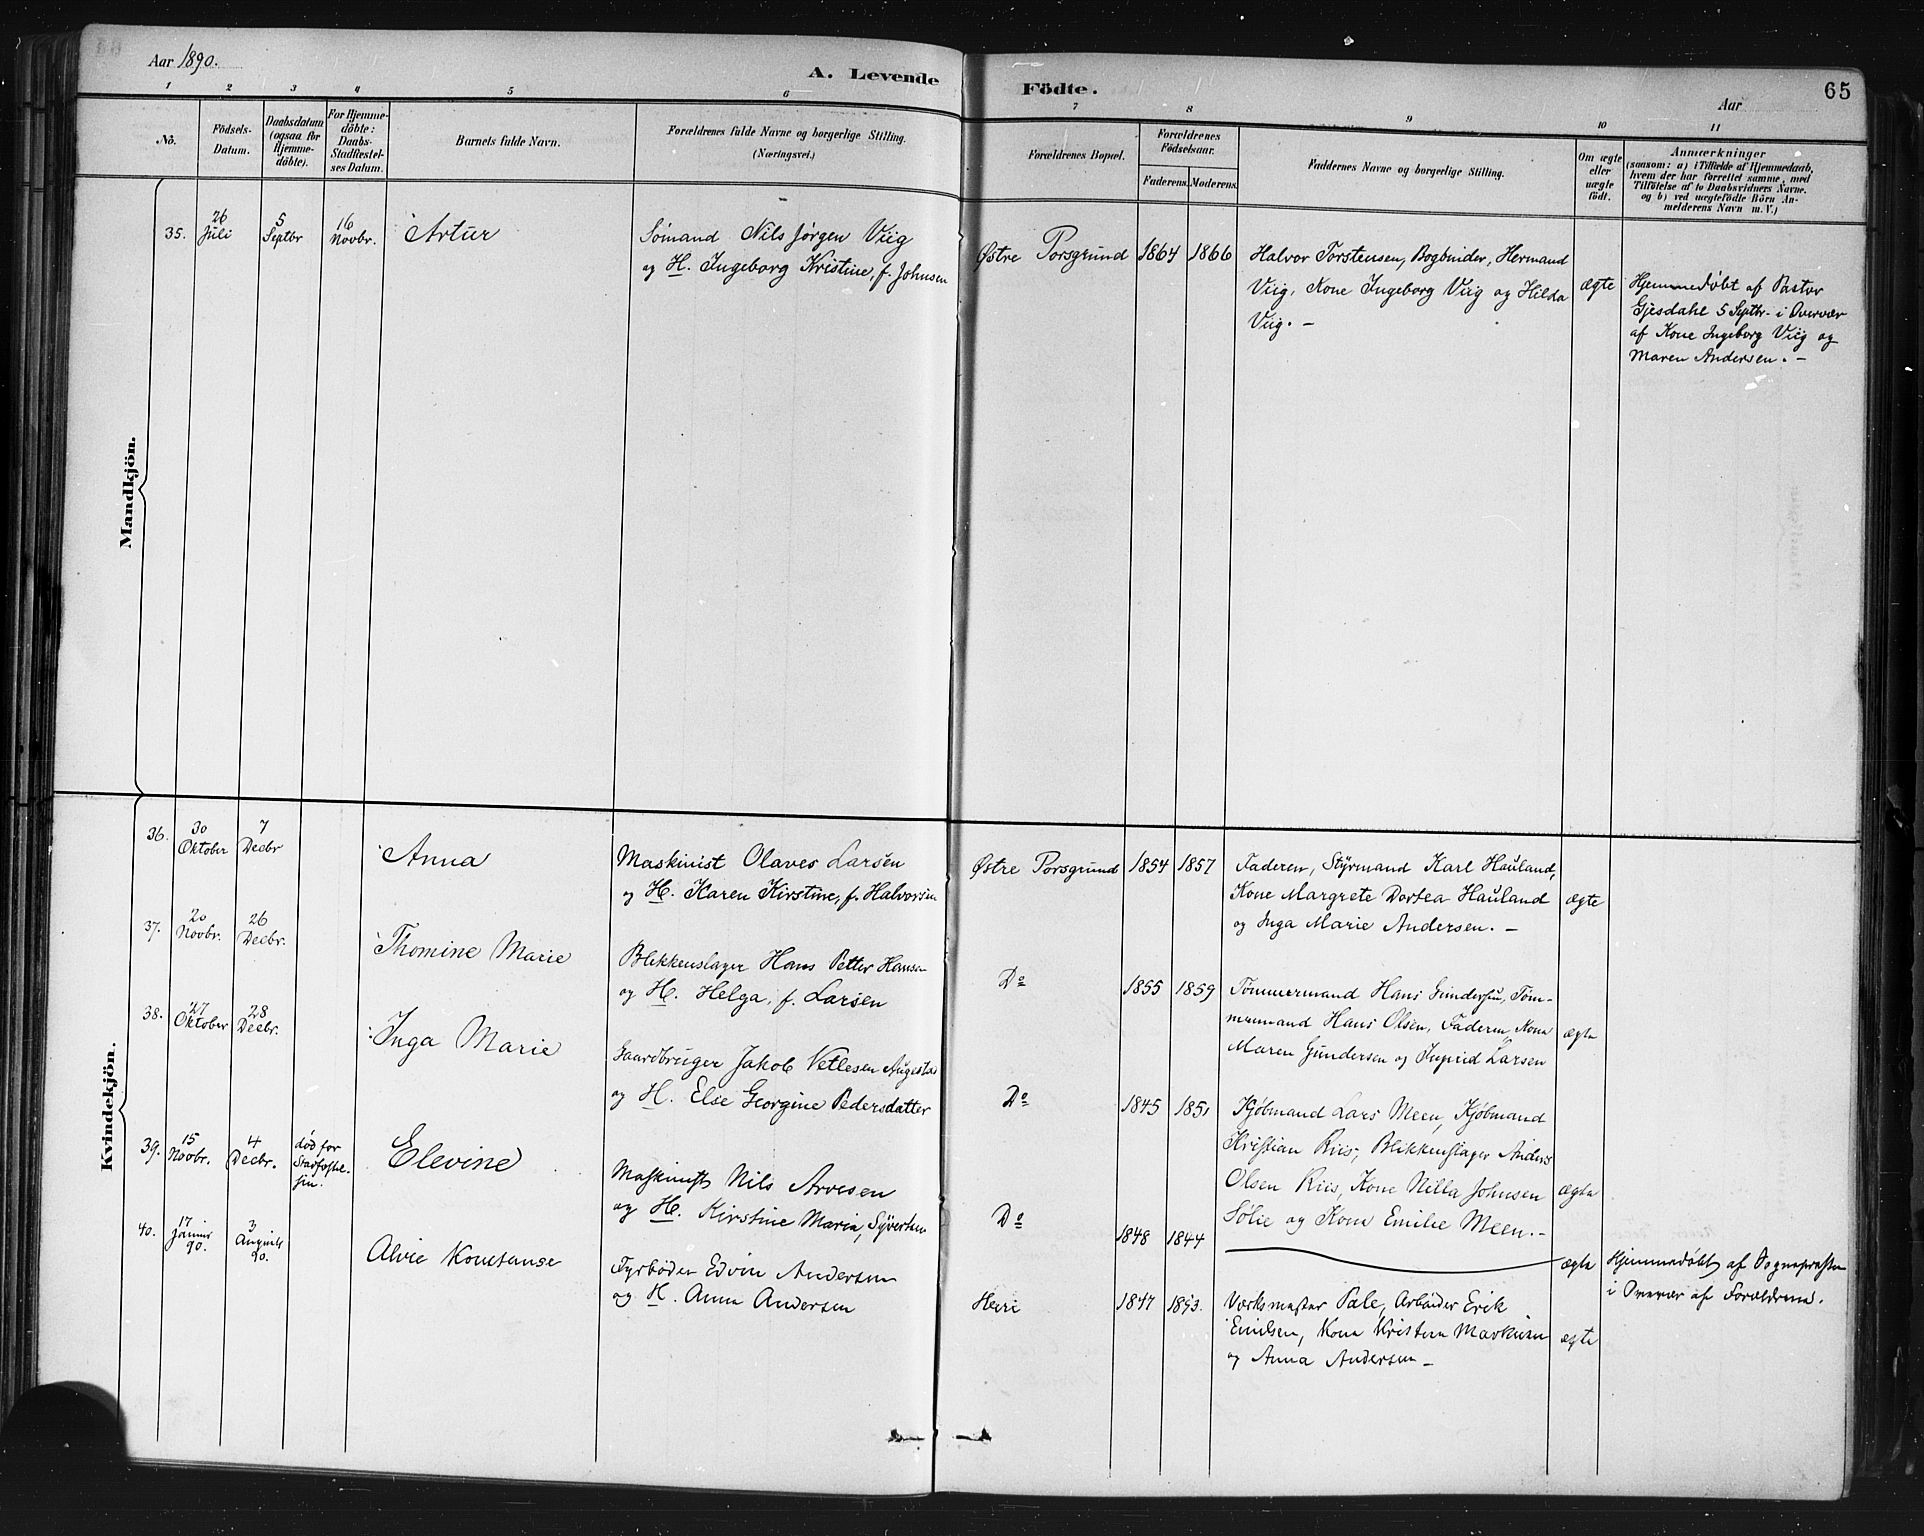 Aar 1890.
A. Levende Födte.
Aar
65
1 2 3 4 5 6 7 8 9 10 11
No.
Födsels-
Datum.
Daabsdatum
(ogsaa for
Hjemme-
döbte).
For Hjemme-
döbte:
Daabs-
Stadfestel-
ses Datum.
Barnets fulde Navn.
Forældrenes fulde Navne og borgerlige Stilling.
(Næringsvei.)
Forældrenes Bopæl.
Forældrenes
Födselsaar.
Faderens. Moderens.
Faddernes Navne og borgerlige Stilling.
Om ægte
eller
uægte
födt.
Anmærkninger
(saasom: a) i Tilfælde af Hjemmedaab,
hvem der har forrettet samme, med
Tilföielse af to Daabsvidners Navne.
og b) ved uægtefödte Börn An-
melderens Navn m. V.)
Mandkjön.
35.
26
Juli
5
Septbr
16
Novbr.
Artur
Sømand Nils Jørgen Viig
og H. Ingeborg Kristine, f. Johnsen
Østre Porsgrund
1864 1866
Halvor Torstensen, Bogbinder, Hermand
Viig, Kone Ingeborg Viig og Hilda
Viig. –
ægte
Hjemmedøbt af Pastor
Gjesdahl 5 Septbr. i Overvær
af Kone Ingeborg Viig og
Maren Andersen. –
Kvindekjön.
36.
30
Oktober
7
Decbr
Anna
Maskinist Olaves Larsen
og H. Karen Kirstine, f. Halvorsen
Østre Porsgrund
1854 1857
Faderen, Styrmand Karl Hauland,
Kone Margrete Dortea Hauland
og Inga Marie Andersen. –
ægte
37.
20
Novbr.
26
Decbr.
Thomine Marie
Blikkenslager Hans Petter Hansen
og H. Helga, f. Larsen
Do
1855 1859
Tømmermand Hans Gundersen, Tøm-
mermand Hans Olsen, Faderen, Kone
Maren Gundersen og Ingrid Larsen
ægte
38.
27
Oktober
28
Decbr.
Inga Marie
Gaardbruger Jakob Vetlesen
og H. Else Georgine Pedersdatter
Do
1845 1851
Kjøbmand Lars Meen, Kjøbmand
Kristian Riis, Blikkenslager Anders
Olsen Riis, Kone Nilla Johnsen
Sølie og Kone Emilie Meen. –
ægte
39.
15
Novbr.
4
Decbr.
død for
Elevine
Maskinist Nils Arvesen
og H. Kirstine Maria, Syvertsen
Do
1848 1844
ægte
Hjemmedøbt af Sognepræsten
i Overvær af Forældrene.
40.
17
Junius
90.
3
August
90.
Alvie Konstanse
Fyrbøder Edvin Andersen
og H. Anna Andersen
Heri
1847
Værksmester Pale, Arbeider Erik
Emilsen, Kone Kristina
og Anna Andersen –
ægte